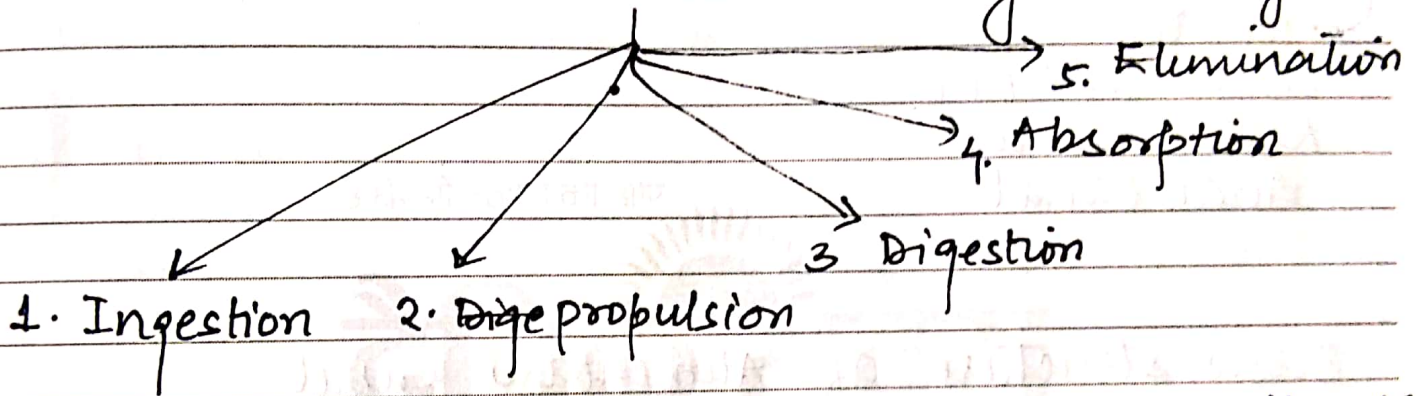 5. Elimination
4. Absorption
3 Digestion
1. Ingestion 2. Dige propulsion